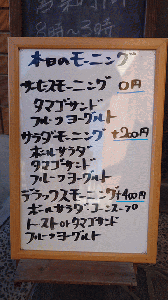 8時〜3時
本日のモーニング
サービスモーニング 0円
タマゴサンド
フルーツヨーグルト
サラダモーニング +200円
ボールサラダ
タマゴサンド
フルーツヨーグルト
デラックスモーニング +400円
ボールサラダ コーンスープ
トースト or タマゴサンド
フルーツヨーグルト